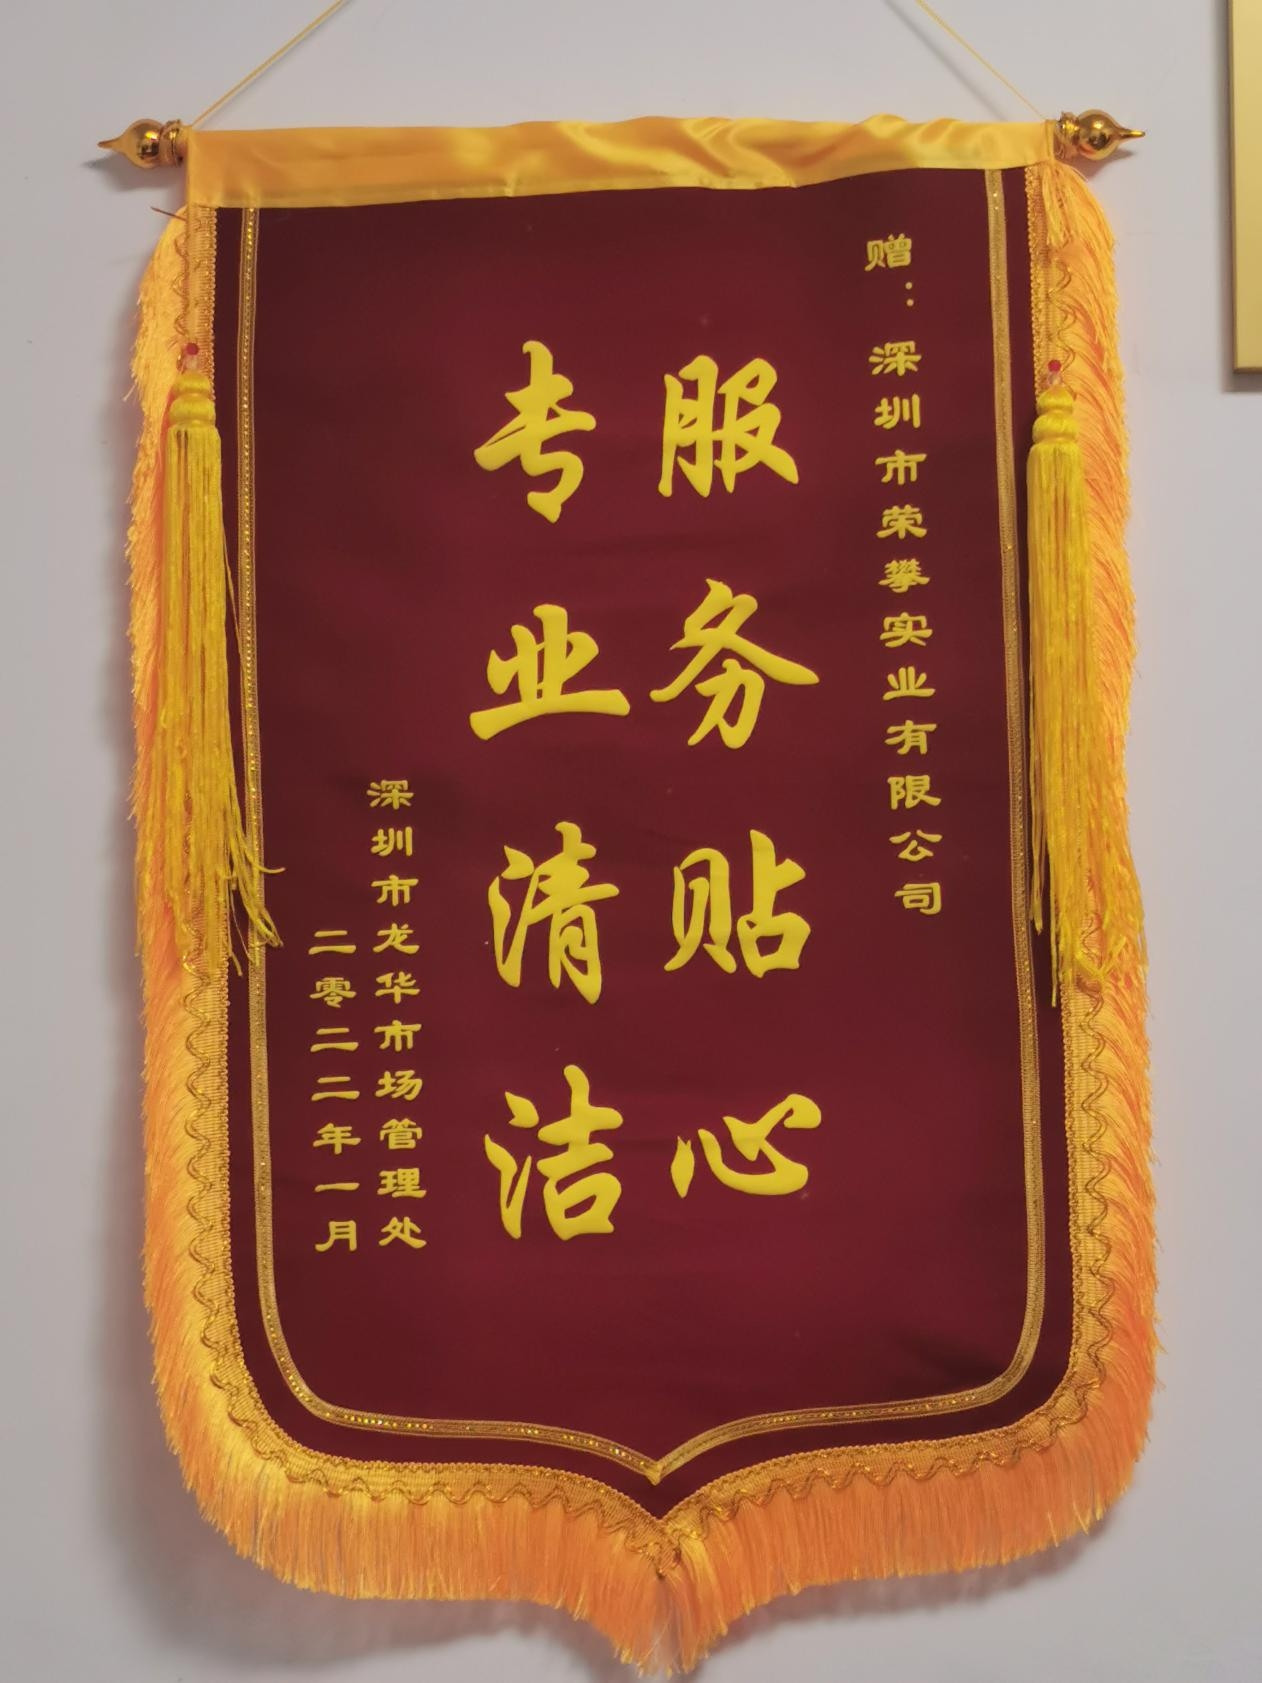 赠：深圳市荣攀实业有限公司
服务贴心
专业清洁
深圳市龙华市场管理处
二零二二年一月